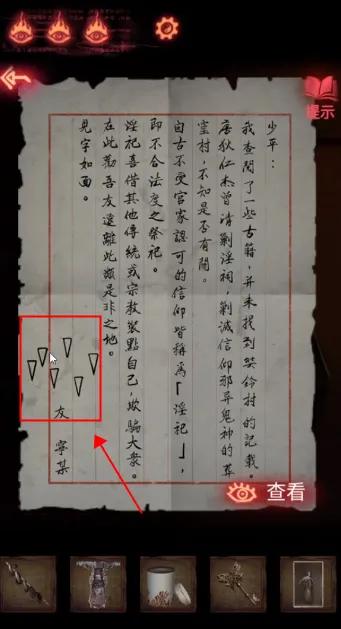 提示
少平：
我查閱了一些古籍，并未找到哭鈴村的記載。
唐狄仁杰曾清剿淫祠，剿滅信仰邪异鬼神的葬
童村，不知是否有關。
自古不受官家認可的信仰皆稱爲「淫祀」，
即不合法度之祭祀。
淫祀喜借其他傳統或宗教裝點自己，欺騙大衆。
在此勸吾友遠離此類是非之地。
見字如面。
友 寧某
查看